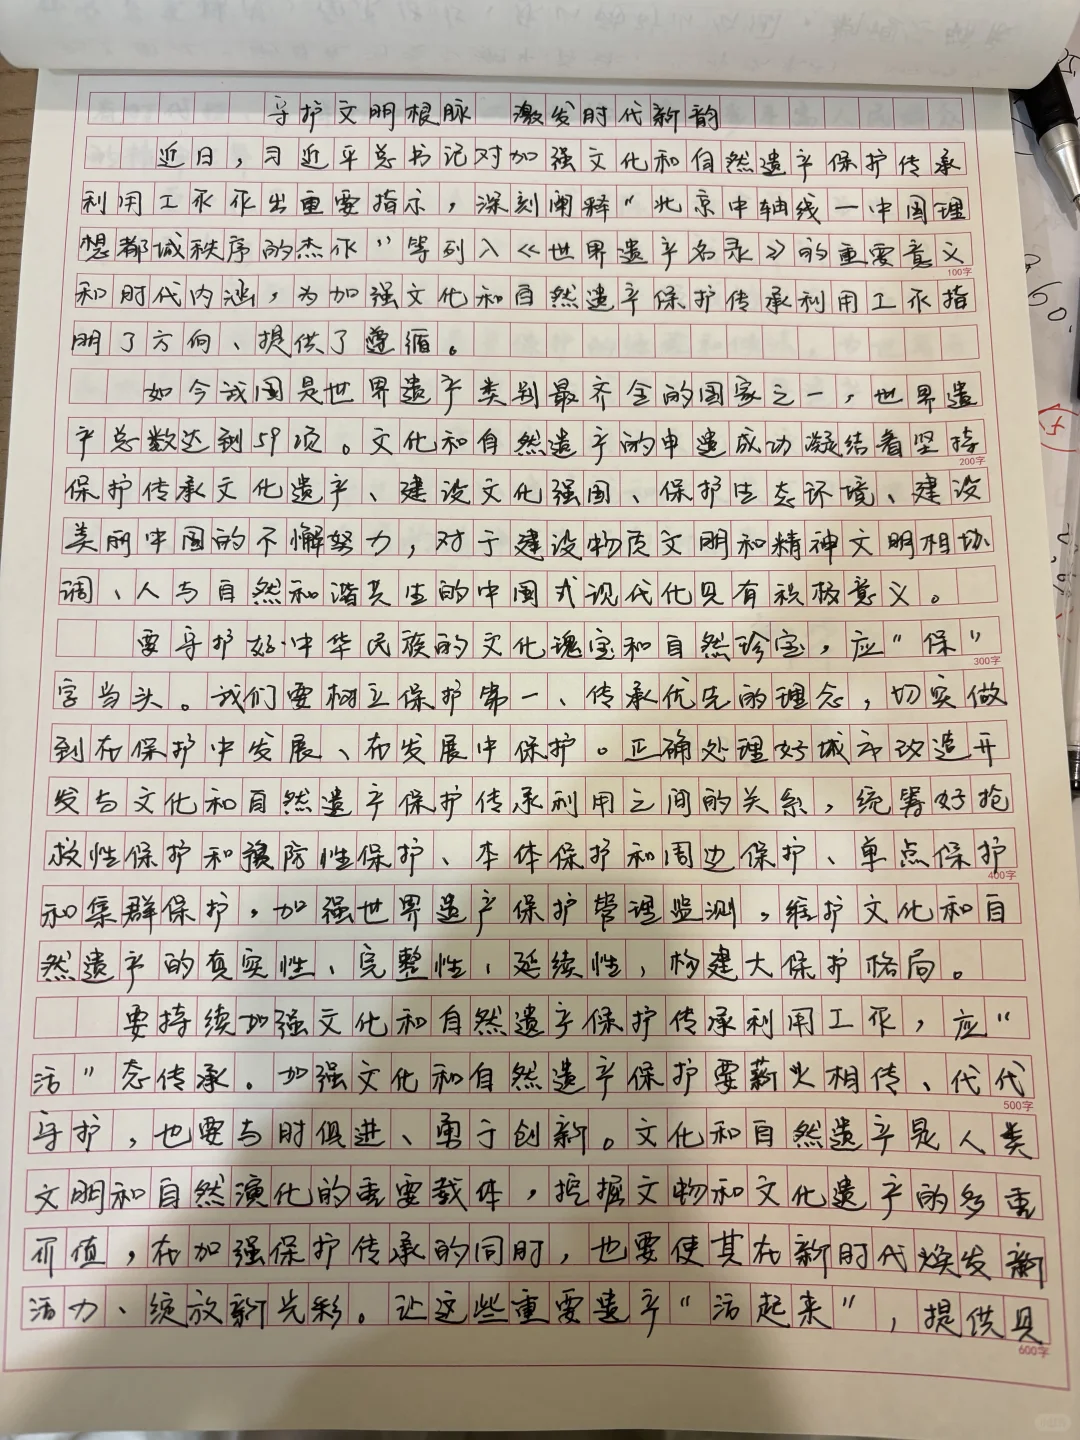 守护文明根脉 激发时代新韵
近日，习近平总书记对加强文化和自然遗产保护传承
利用工作作出重要指示，深刻阐释“北京中轴线—中国理
想都城秩序的杰作”等列入《世界遗产名录》的重要意义
100字
和时代内涵，为加强文化和自然遗产保护传承利用工作指
明了方向、提供了遵循。
如今我国是世界遗产类别最齐全的国家之一，世界遗
产总数达到59项。文化和自然遗产的申遗成功凝结着坚持
200字
保护传承文化遗产、建设文化强国、保护生态环境、建设
美丽中国的不懈努力，对于建设物质文明和精神文明相协
调、人与自然和谐共生的中国式现代化具有积极意义。
要守护好中华民族的文化瑰宝和自然珍宝，应“保”
300字
字当头。我们要树立保护第一、传承优先的理念，切实做
到在保护中发展、在发展中保护。正确处理好城市改造开
发与文化和自然遗产保护传承利用之间的关系，统筹好抢
救性保护和预防性保护、本体保护和周边保护、单点保护
400字
和集群保护，加强世界遗产保护管理监测，维护文化和自
然遗产的真实性、完整性、延续性，构建大保护格局。
要持续加强文化和自然遗产保护传承利用工作，应“
活”态传承。加强文化和自然遗产保护要薪火相传、代代
500字
守护，也要与时俱进、勇于创新。文化和自然遗产是人类
文明和自然演化的重要载体，挖掘文物和文化遗产的多重
价值，在加强保护传承的同时，也要使其在新时代焕发新
活力、绽放新光彩。让这些重要遗产“活起来”，提供具
600字